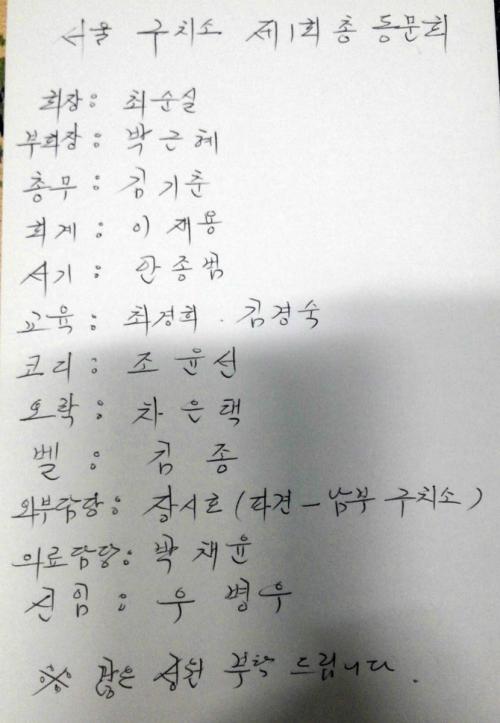 서울 구치소 제1회 총 동문회
회장: 최순실
부회장: 박근혜
총무: 김기춘
회계: 이재용
서기: 안종범
교육: 최경희. 김경숙
코리: 조윤선
오락: 차은택
벨: 김종
외부담당: 장시호 (파견-남부 구치소)
의료담당: 박채윤
신임: 우병우
※ 많은 성원 부탁 드립니다.